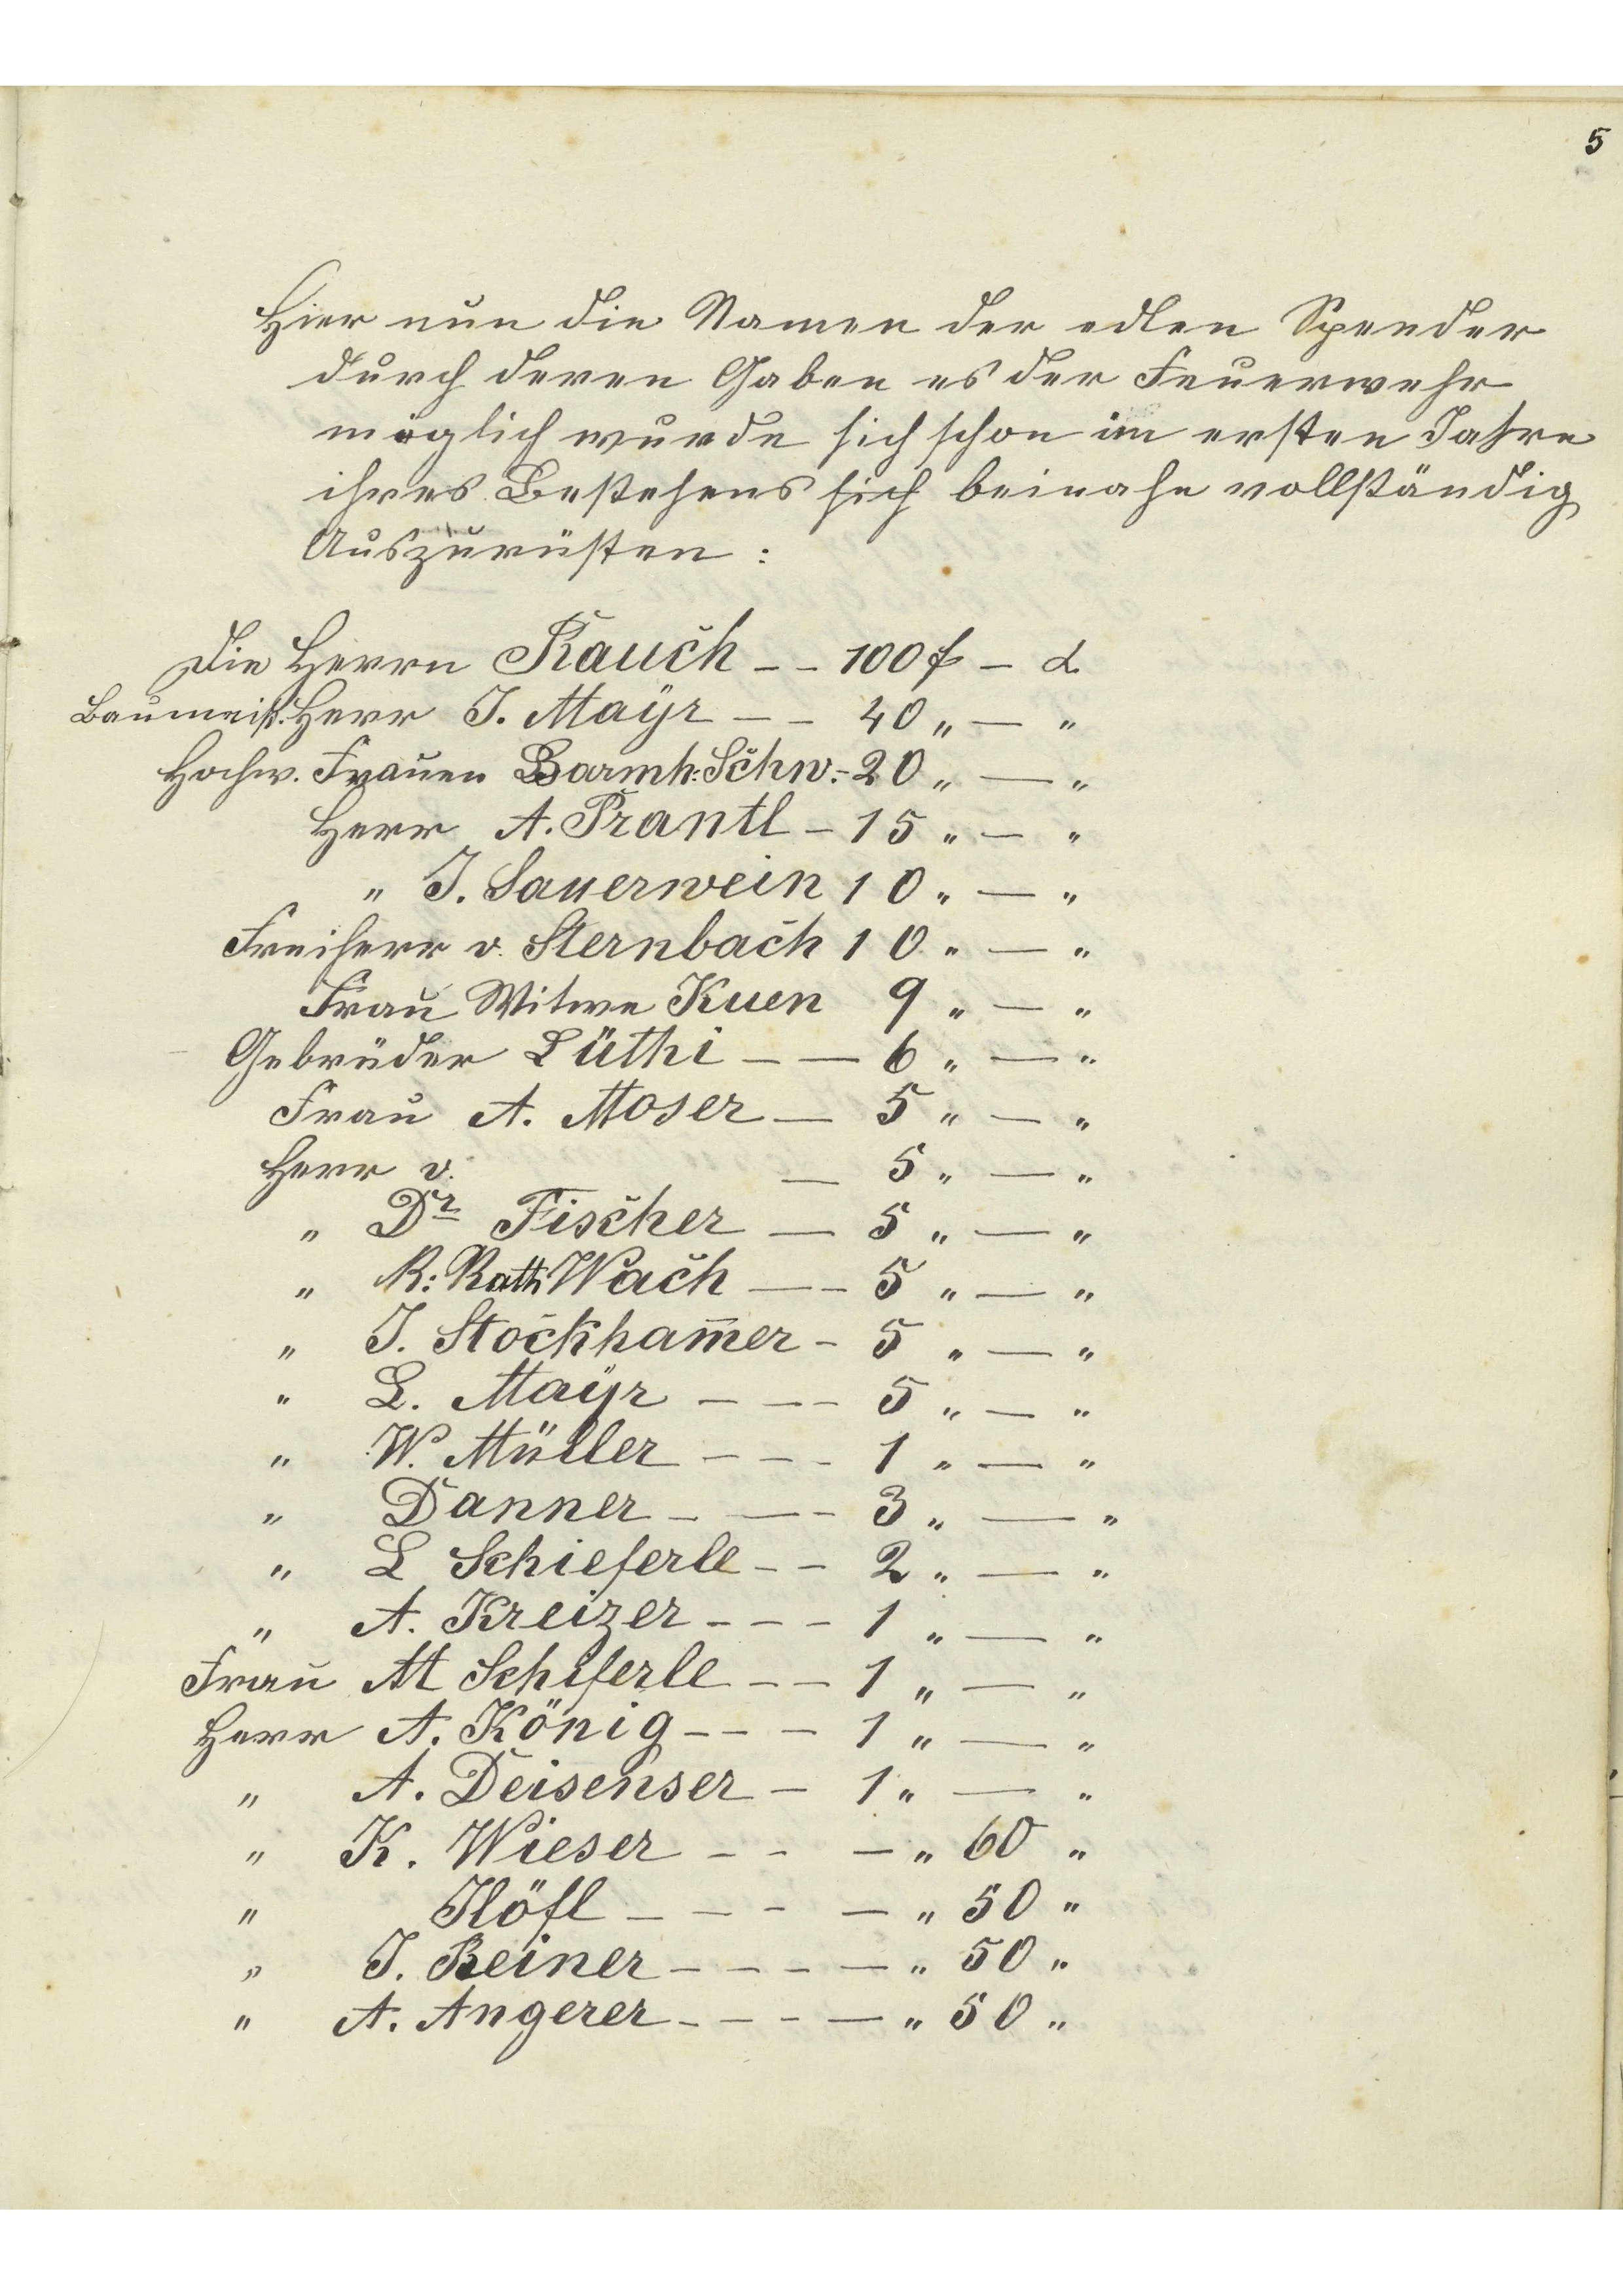 5
Hier nun die Namen der edlen Spender
durch deren Gaben es der Feuerwehr
möglich wurde sich schon im ersten Jahre
ihres Bestehens sich beinahe vollständig
Auszurüsten:
Die Herrn Rauch -- 100 f - x
Baumeist. Herr J. Mayr -- 40 „ — „
Hochw. Frauen Barmh: Schw. - 20 „ — „
Herr A. Prantl - 15 „ — „
„ J. Sauerwein 10 „ — „
Freiherr v. Sternbach 10 „ — „
Frau Witwe Kuen 9 „ — „
Gebrüder Lüthi — — 6 „ — „
Frau A. Moser — 5 „ — „
Herr v. — 5 „ — „
„ Dr Fischer — 5 „ — „
„ R: Rath Wach — - 5 „ — „
„ J. Stockham̄er - 5 „ — „
„ L. Mayr - - - 5 „ — „
„ W. Müller - - - 1 „ — „
„ Danner - — - 3 „ — „
„ L Schieferle - - 2 „ — „
„ A. Kreizer - - - 1 „ — „
Frau M Schiferle - - 1 „ — „
Herr A. König - - - 1 „ — „
„ A. Deisenser - 1 „ — „
„ K. Wieser - - — „ 60 „
„ Höfl - - - — „ 50 „
„ J. Reiner - - - — „ 50 „
„ A. Angerer - - - — „ 50 „